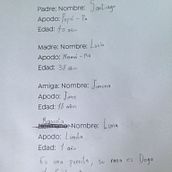 Padre: Nombre: Santiago
Apodo: Papá - Pa
Edad: 40 años
Madre: Nombre: Lucía
Apodo: Mamá - Ma
Edad: 38 años
Amiga: Nombre: Jimena
Apodo: Jime
Edad: 16 años
Mascota
Nombre: Luna
Apodo: Lunita
Edad: 1 año
Es una perrita, su raza es Dogo